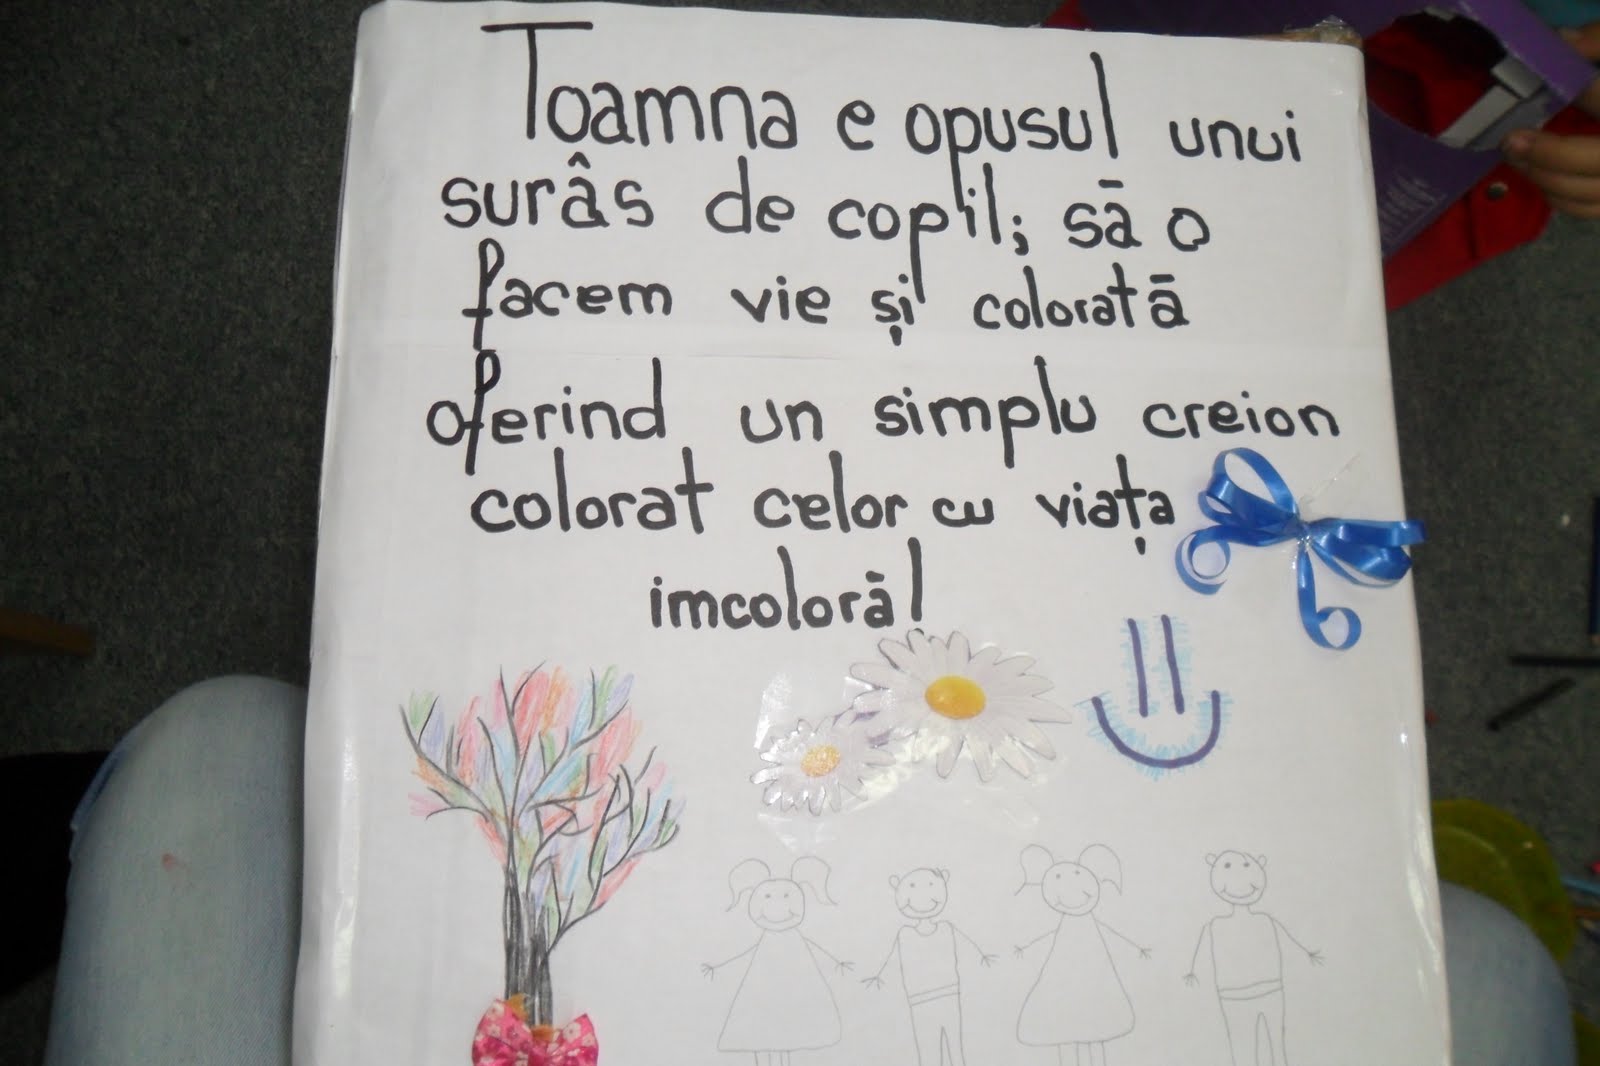 Toamna e opusul unui
surâs de copil; să o
facem vie și colorată
oferind un simplu creion
colorat celor cu viața
imcoloră!